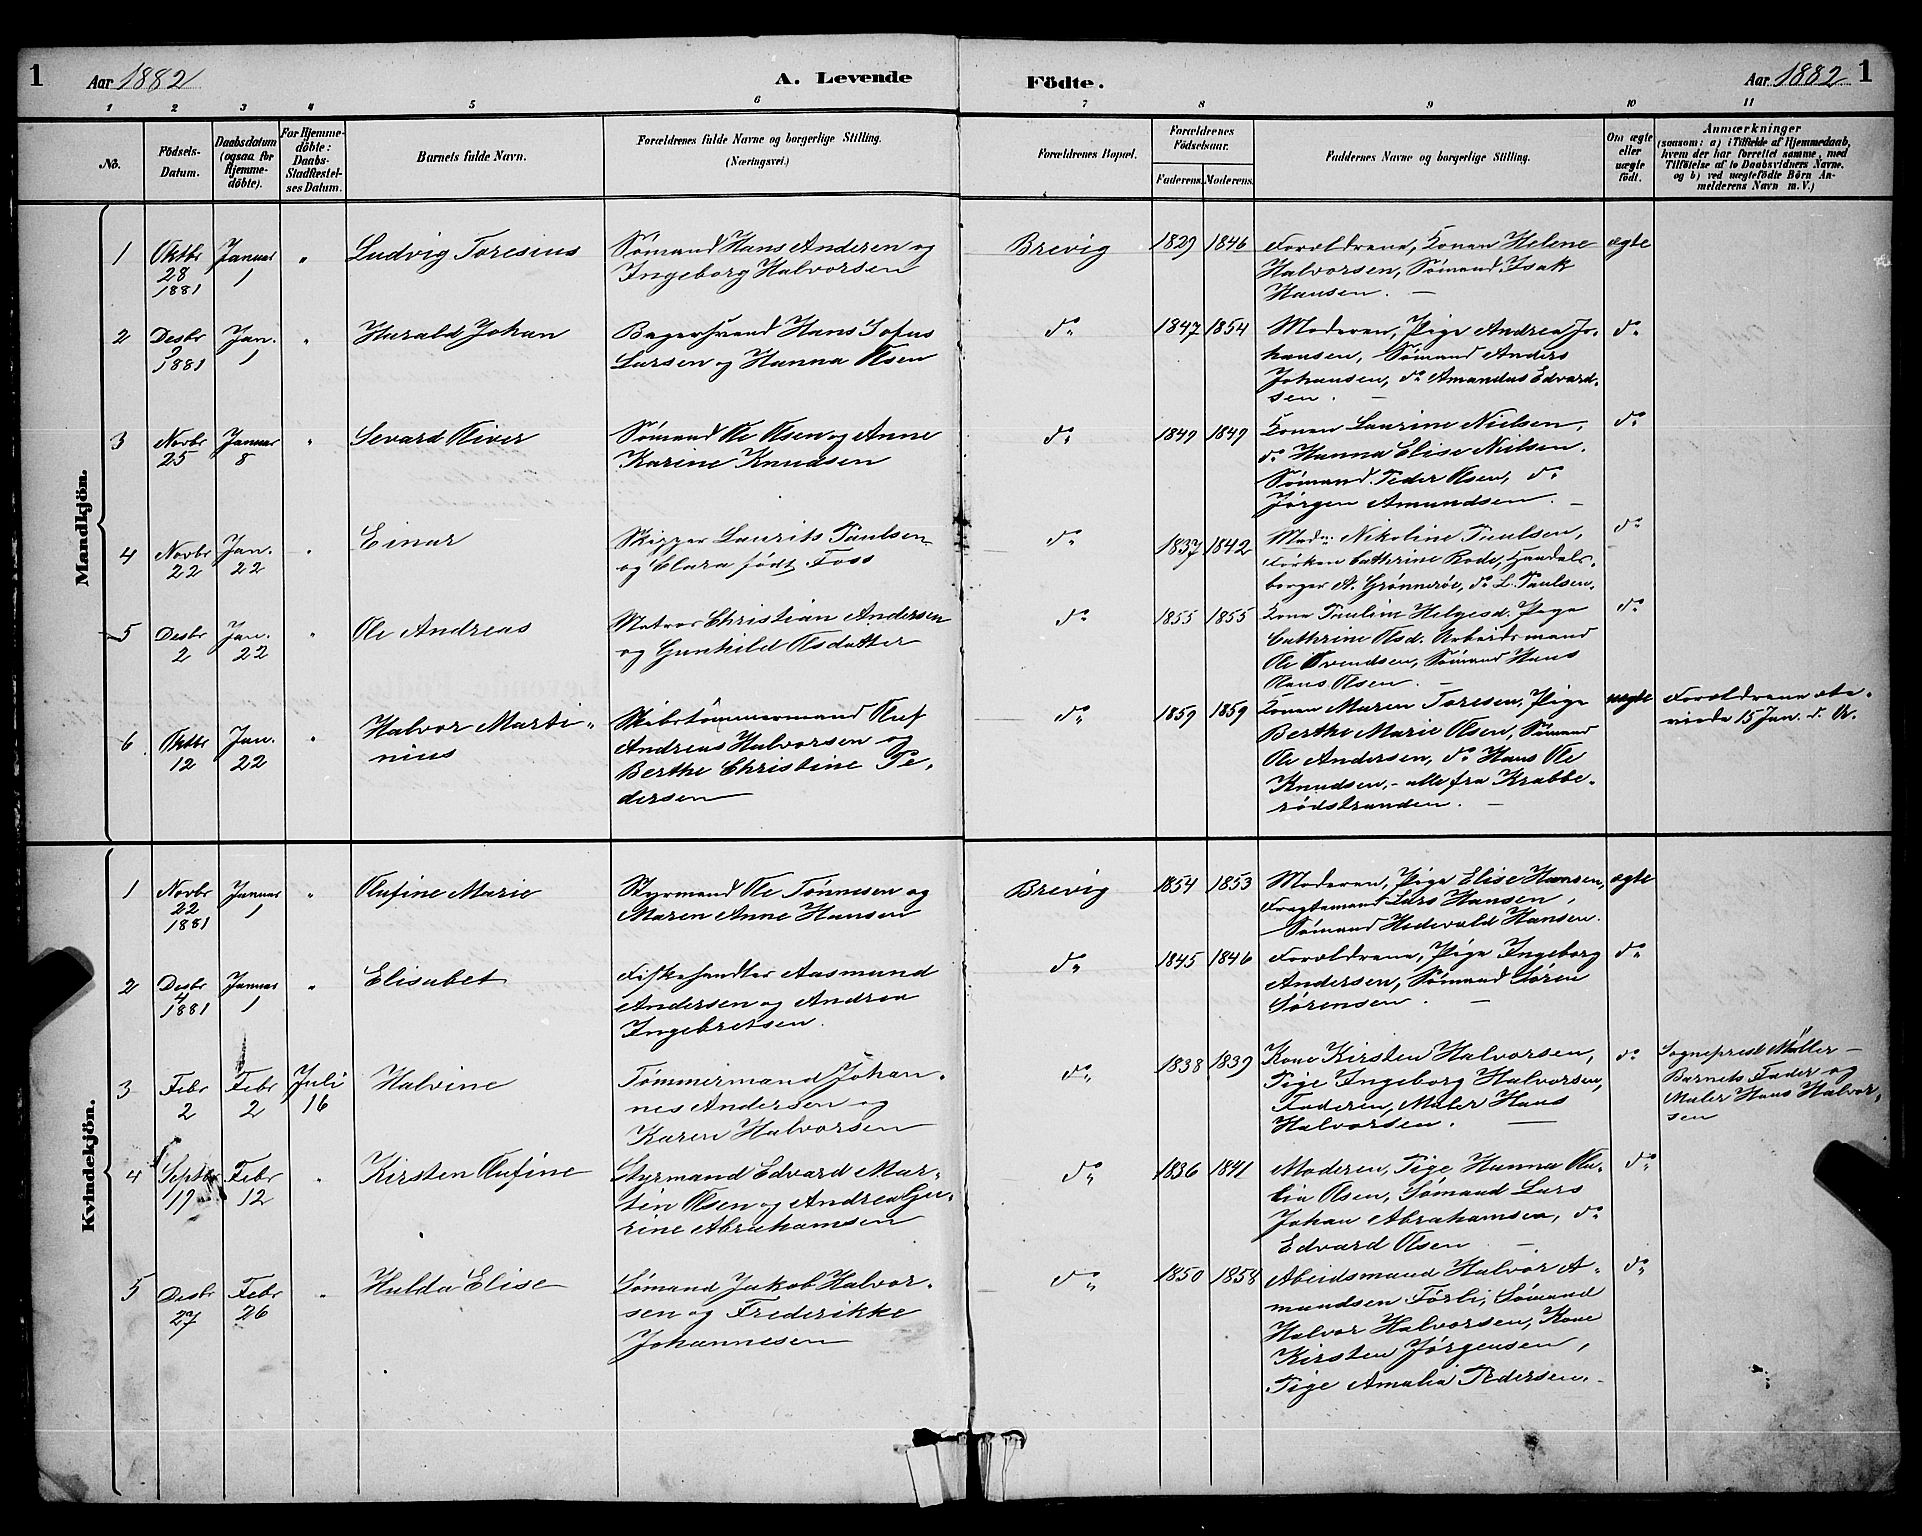 1 Aar 1882 A. Levende Födte. Aar 1882 1
1 2 3 4 5 6 7 8 9 10 11
No. Födsels-Datum. Daabsdatum (ogsaa for Hjemmedöbte). For Hjemmedöbte: Daabs-Stadfæstelses Datum. Barnets fulde Navn. Forældrenes fulde Navne og borgerlige Stilling. (Næringsvei.) Forældrenes Bopæl. Forældrenes Födselsaar. Faderens. Moderens. Faddernes Navne og borgerlige Stilling. Om ægte eller uægte födt. Anmærkninger (saasom: a) i Tilfælde af Hjemmedaab, hvem der har forrettet samme, med Tilföielse af to Daabsvidners Navne. og b) ved uægtefödte Börn Anmelderens Navn m. V.)
Mandkjön.
1 Oktbr 28 1881 Januar 1 " Ludvig Toresius Sømand Hans Andersen og Brevig 1829 1846 Forældrene, Konen Helene ægte
Ingeborg Halvorsen Halvorsen, Sømand Isak
Hansen. —
2 Desbr 9 1881 Jan. 1 " Harald Johan Bagersvend Hans Sofus do 1847 1854 Moderen, Pige Andrea Jo- do
Larsen og Hanna Olsen hansen, Sømand Anders
Johansen, do Amandus Edvard-
sen. —
3 Novbr 25 Januar 8 " Sevard Oliver Sømand Ole Olsen og Anne do 1849 1849 Konen Laurine Nielsen, do
Karine Knudsen do Hanna Elise Nielsen.
Sømand Peder Olsen, do
Jørgen Amundsen. —
4 Novbr 22 Jan. 22 " Einar Skipper Laurits Paulsen do 1837 1842 Mad: Nikoline Paulsen, do
og Clara født Foss Frøken Cathrine Rode, Handels-
borger A. Grønnerøe, do L. Paulsen.
5 Desbr 2 Jan. 22 " Ole Andreas Matros Christian Andersen do 1855 1855 Kone Pauline Helgesd. Pige do
og Gunhild Olsdatter Cathrine Olsd. Arbeidsmand
Ole Svendsen, Sømand Hans
Olaus Olsen. —
6. Oktbr 12 Jan. 22 " Halvor Marti- Skibstømmermand Oluf do 1859 1859 Konen Maren Toresen, Pige uægte Forældrene ekte-
nius Andreas Halvorsen og Berthe Marie Olsen, Sømand viede 15 Jan. d. A.
Berthe Christine Pe- Ole Andersen, do Hans Ole
dersen Knudsen, - alle fra Krabbe-
rødstranden. —
Kvindekjön.
1 Novbr 22 1881 Januar 1 " Olufine Marie Styrmand Ole Tønnesen og Brevig 1854 1853 Moderen, Pige Elise Hansen, ægte
Maren Anne Hansen Fragtemand Lars Hansen,
Sømand Hedevald Hansen.
2 Desbr 4 1881 Januar 1 " Elisabet Fiskehandler Aasmund do 1845 1846 Forældrene, Pige Ingeborg do
Andersen og Andrea Andersen, Sømand Søren
Ingebretsen. Sørensen. —
3 Febr 2 Febr 2 Juli 16 Halvine Tømmermand Johan- do 1838 1839 Kone Kirsten Halvorsen, do Sogneprest Møller -
nes Andersen og Pige Ingeborg Halvorsen, Barnets Fader og
Karen Halvorsen Faderen, Maler Hans Maler Hans Halvor-
Halvorsen. — sen
4 Septbr 19 Febr 12 " Kirsten Olufine Styrmand Edvard Mar- do 1836 1841 Moderen, Pige Hanna Ma- do
tin Olsen og Andrea Gu- tia Olsen, Sømand Lars
rine Abrahamsen Johan Abrahamsen, do
Edvard Olsen —
5 Desbr 27 Febr 26 " Hulda Elise Sømand Jakob Halvor- do 1850 1858 Abeidsmand Halvor A- do
sen og Frederikke mundsen Førli, Sømand
Johannesen Halvor Halvorsen, Kone
Kirsten Jørgensen,
Pige Amalia Pedersen. -